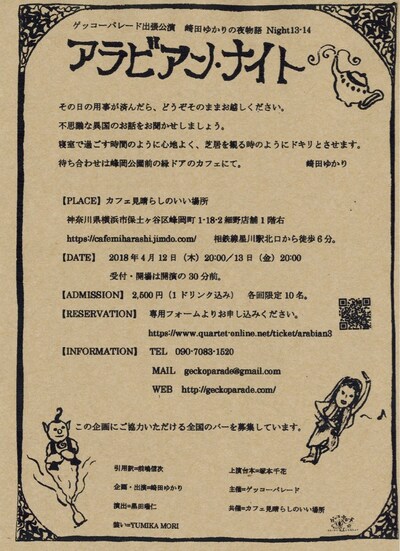 ゲッコーパレード出張公演　崎田ゆかりの夜物語 Night13-14
アラビアン・ナイト
その日の用事が済んだら、どうぞそのままお越しください。
不思議な異国のお話をお聞かせしましょう。
寝室で過ごす時間のように心地よく、芝居を観る時のようにドキリとさせます。
待ち合わせは峰岡公園前の緑ドアのカフェにて。　崎田ゆかり
【PLACE】カフェ見晴らしのいい場所
神奈川県横浜市保土ヶ谷区峰岡町1-18-2細野店舗1階右
https://cafemiharashi.jimdo.com/　相鉄線星川駅北口から徒歩6分。
【DATE】 2018年4月12日（木）20:00/13日（金）20:00
受付・開場は開演の30分前。
【ADMISSION】 2,500円（1ドリンク込み）　各回限定10名。
【RESERVATION】 専用フォームよりお申し込みください。
https://www.quartet-online.net/ticket/arabian3
【INFORMATION】 TEL 090-7083-1520
MAIL geckoparade@gmail.com
WEB http://geckoparade.com/
この企画にご協力いただける全国のバーを募集しています。
引用訳=前嶋信次
上演台本=塚本千花
企画・出演=崎田ゆかり
主催=ゲッコーパレード
演出=黒田瑞仁
共催=カフェ見晴らしのいい場所
装い=YUMIKA MORI